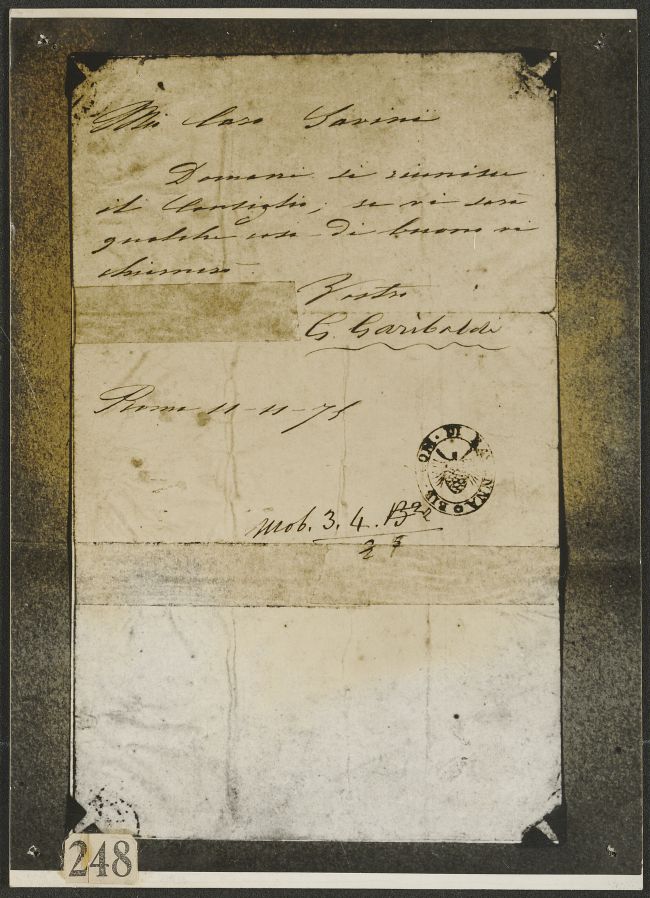 Mio Caro Savini
Domani si riunisce
il Consiglio; se vi sarà
qualche cosa di buono vi
chiamerò.
Vostro
G. Garibaldi
Roma 11-11-75
BIB. COM. DI RAVENNA
Mob. 3. 4.
248